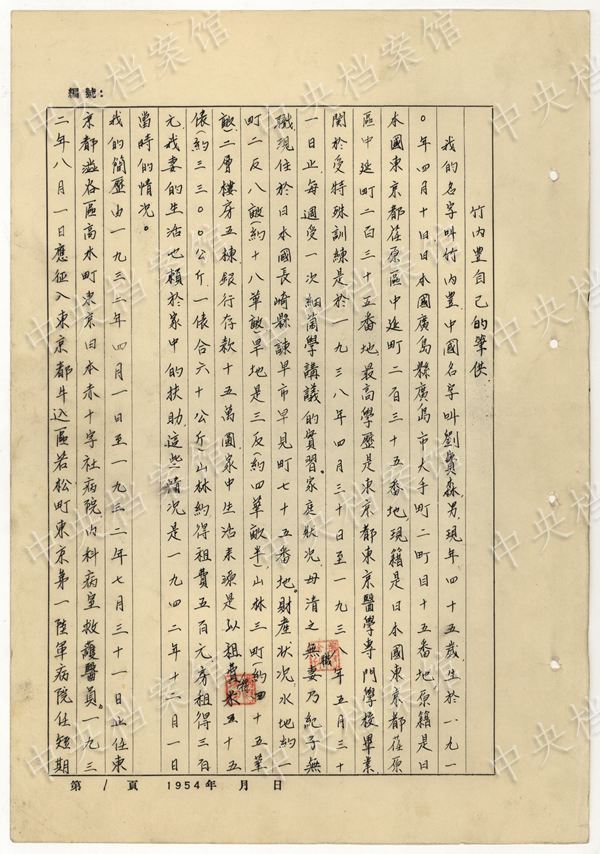 編號：
竹内豊自己的筆供
我的名字叫竹内豊中國名字叫劉賓森，男，現年四十五歲，生於一、九一
〇年四月十日日本國廣島縣廣島市大手町二町目十五番地，原籍是日
本國東京都荏原區中延町二百三十五番地，現籍是日本國東京都荏原
區中延町二百三十五番地，最高學歷是東京都東京醫學專門學校畢業，
関於受特殊訓練是於一九三八年四月三十日至一九三八年五月三十
一日止每週受一次細菌學講議的實習。家庭狀况母清之無妻乃紀子無
職，現住於日本國長崎縣諫早市早見町七十五番地。財產狀况水地約一
町二反八畝（約十八華畝）旱地是三反（約四華畝半）山林三町（約四十五華
畝）二層樓房五棟銀行存款十五萬圓家中生活来源是以租費米五十五
俵（約三三〇〇公斤一俵合六十公斤）山林約得租費五百元，房租得三百
元，我妻的生活也賴於家中的扶助，這些情况是一九四二年十二月一日
當時的情况。
我的簡歷由一九三二年四月一日至一九三二年七月三十一日止任東
京都澁谷區高木町東京日本赤十字社病院内科病室救護醫員。一九三
二年八月一日應征入東京都牛込區若松町東京第一陸軍病院任短期
第 1 頁 1954年 月 日
中央档案馆